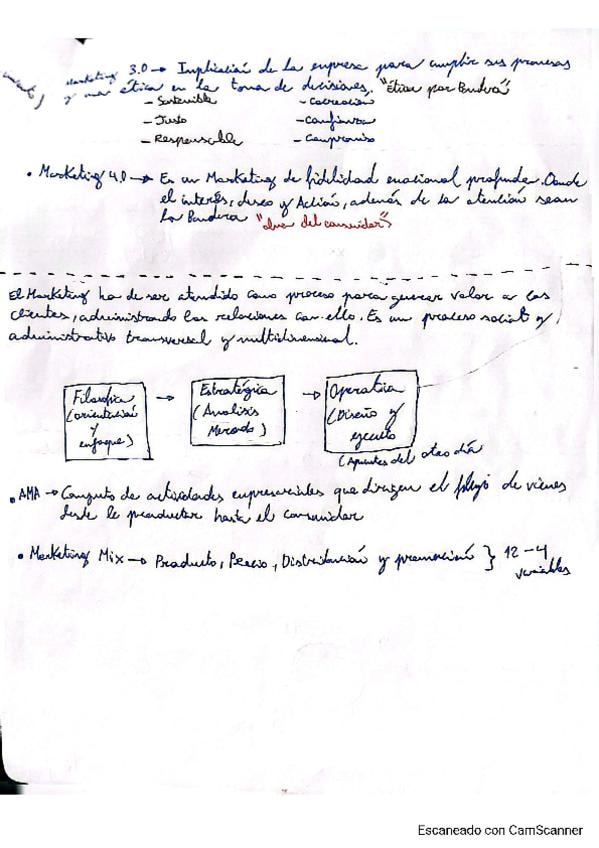 Marketing 3.0 → Implicación de la empresa para cumplir sus promesas
y más ética en la toma de decisiones. "Ética por Bandera"
- Sostenible - Cocreación
- Justo - Confianza
- Responsable - Compromiso
• Marketing 4.0 → Es un Marketing de fidelidad emocional profunda. Donde
el interés, deseo y Acción, además de la atención sean
la Bandera "
El Marketing ha de ser atendido como proceso para generar valor a los
clientes, administrando las relaciones con ello. Es un proceso social y
administrativo transversal y multidimensional.
Filosofía (orientación y enfoque) → Estratégica (Analisis Mercado) → Operativa (Diseño y
(Apuntes del otro día
• AMA → Conjunto de actividades empresariales que dirigen el flujo de vienes
desde le productor hasta el consumidor
• Marketing Mix → Producto, Precio, Distribución y promoción } 12-4
variables
Escaneado con CamScanner